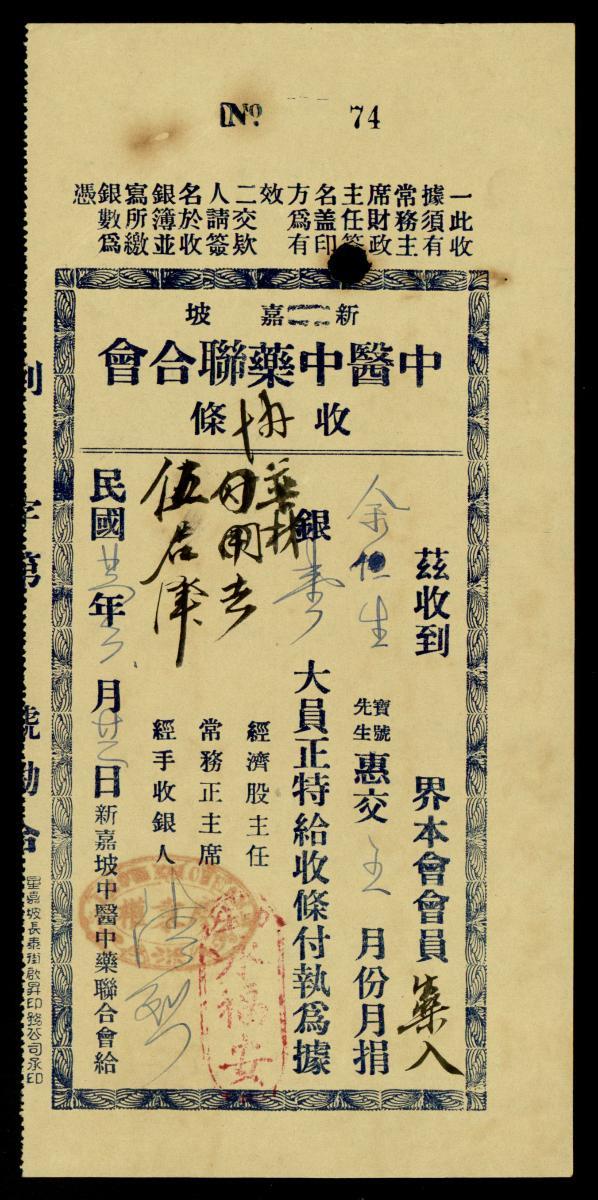 No. 74
一此收
據須有
常務主
席財政
主任簽
名盖印
方爲有
效
二交欵
人請簽
名於收
銀簿並
寫所繳
銀數爲
憑
新嘉坡
中醫中藥聯合會
收條
茲收到 界本會會員
余仁生 寶號先生惠交 五 月份月捐
銀 壹 大員正特給收條付執爲據
經濟股主任
常務正主席
經手收銀人
民國 年 六 月 廿 日新嘉坡中醫中藥聯合會給
字第 號勘合
星嘉坡長泰街啟昇印務公司承印